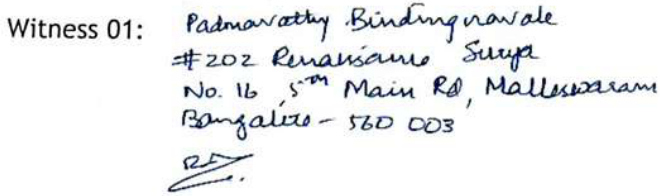 Witness 01: Padmavathy Bindingnavale
#202 Renaissance Surya
No. 16, 5th Main Rd, Malleswaram
Bangalore - 560 003